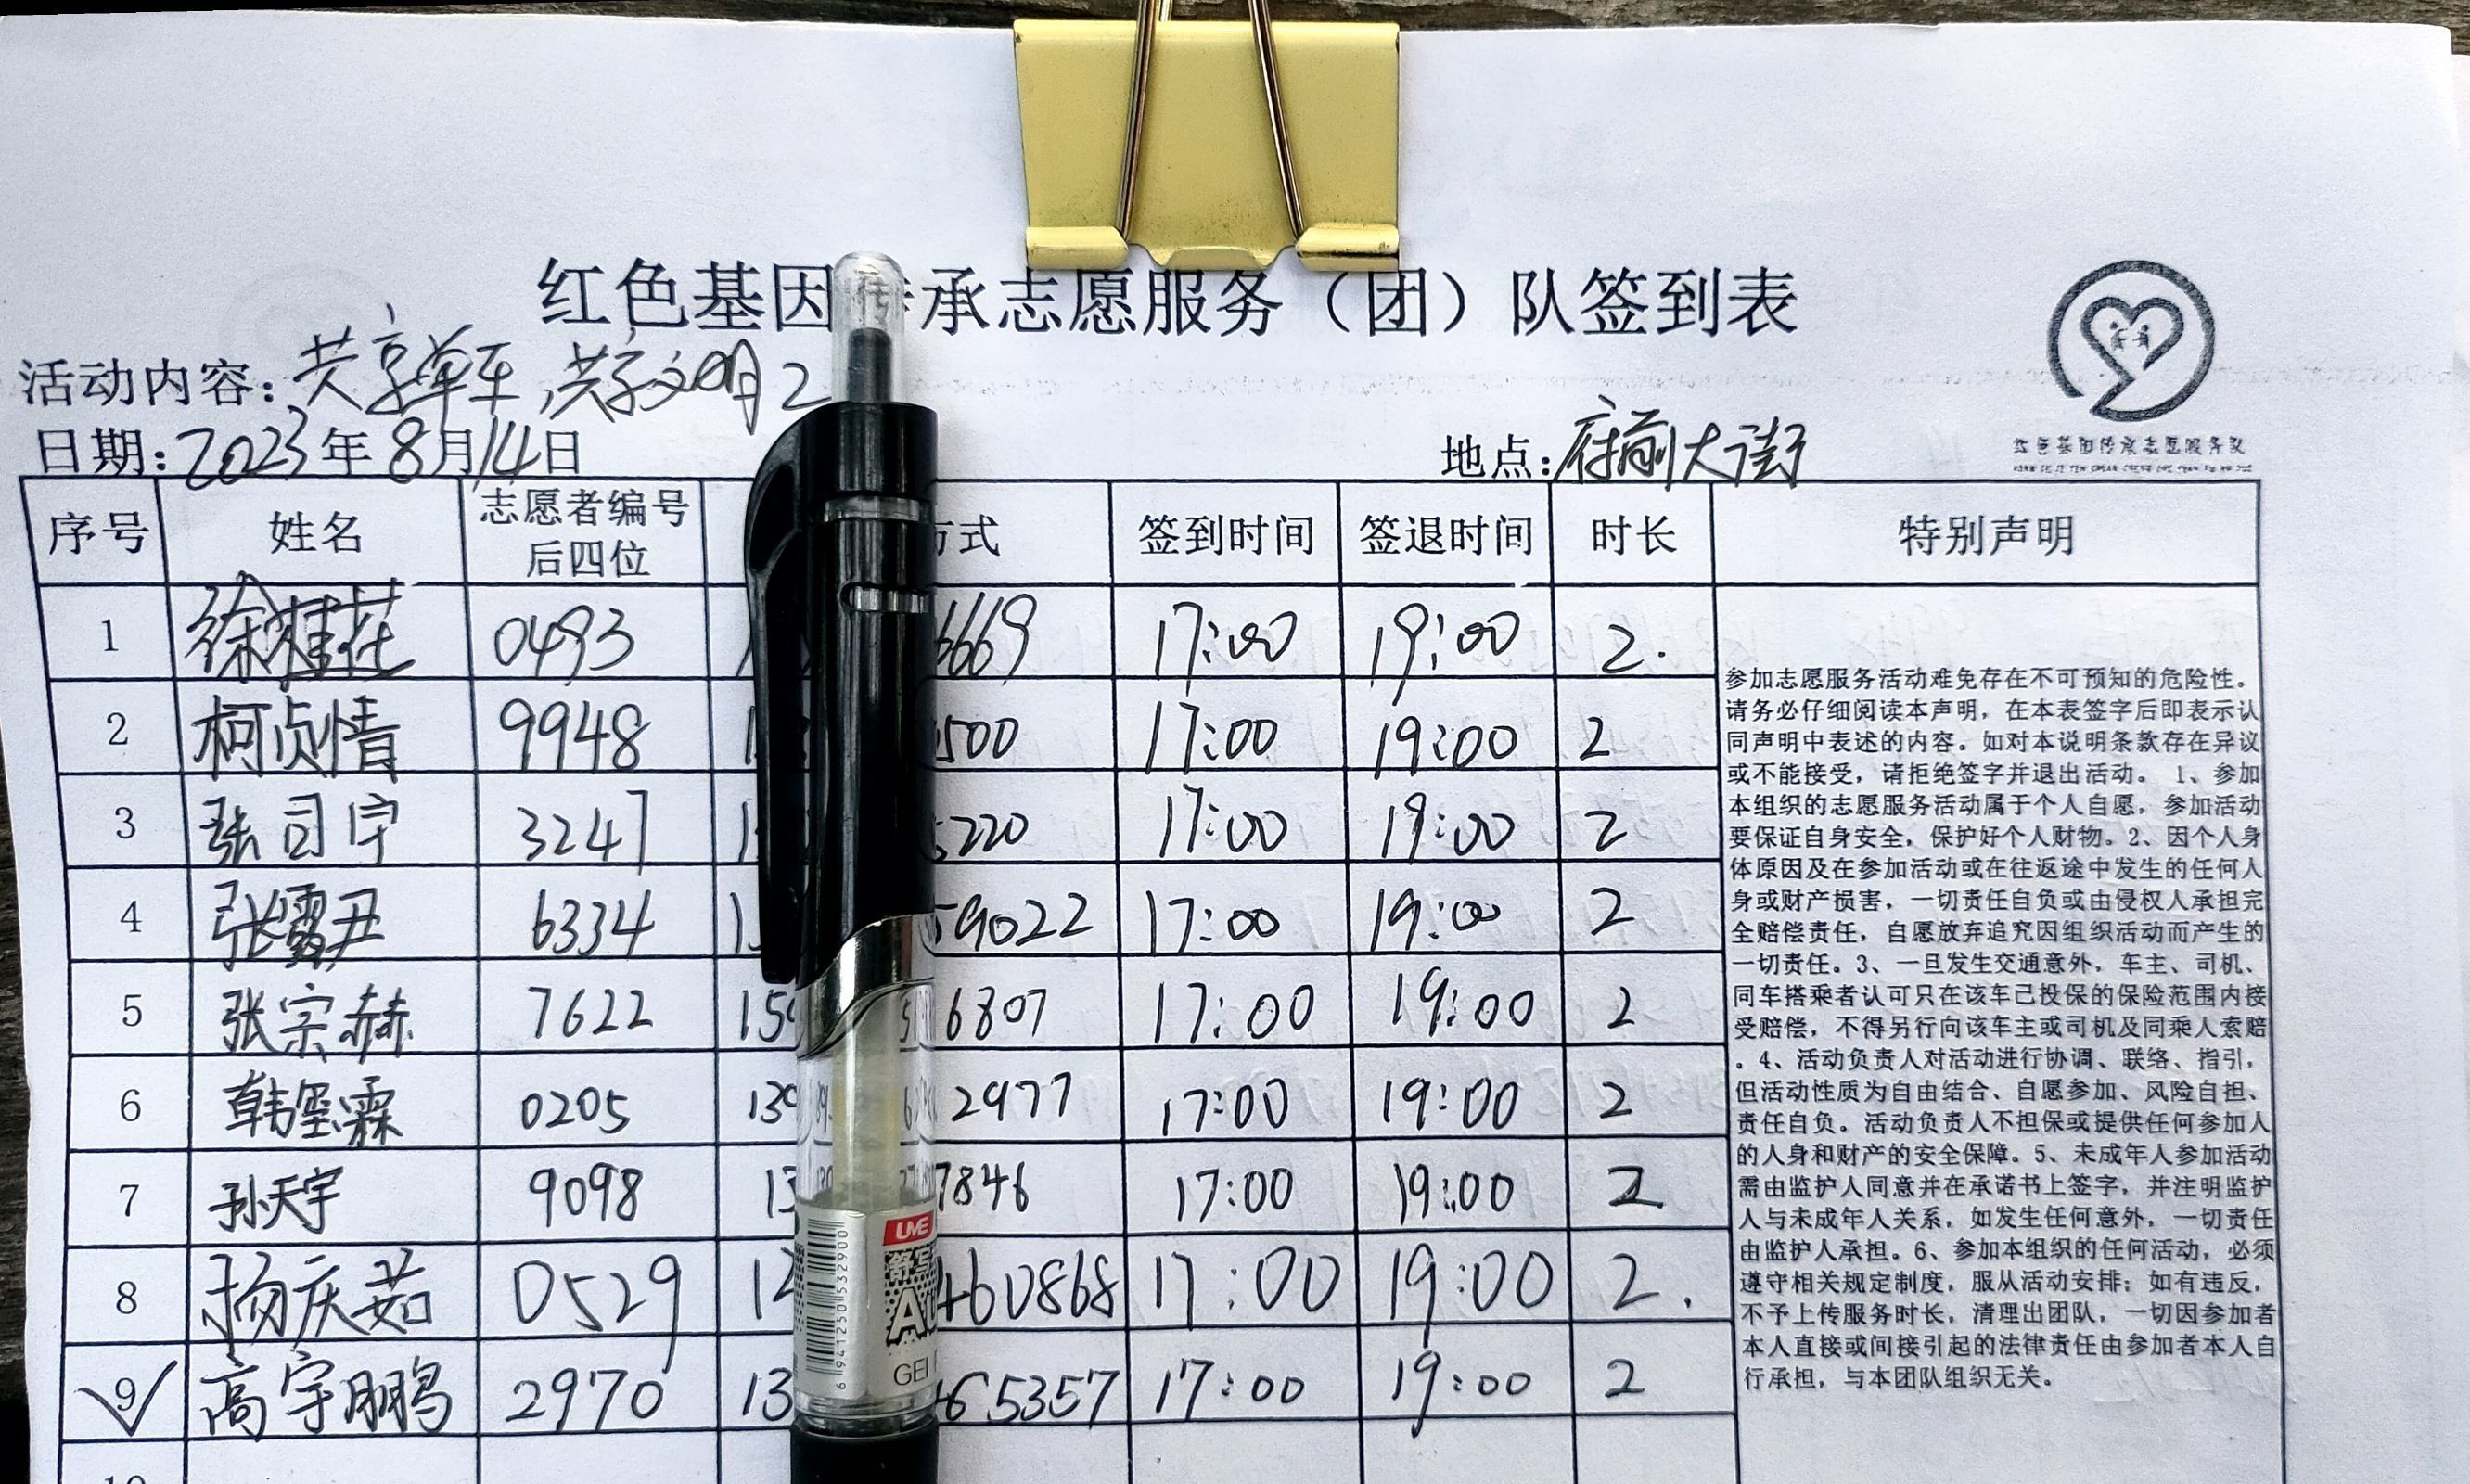 红色基因传承志愿服务（团）队签到表
活动内容：共享单车，共享文明2
日期：2023年8月14日
地点：府前大街
红色基因传承志愿服务队
序号 姓名 志愿者编号后四位 方式 签到时间 签退时间 时长 特别声明
1 徐桂茌 0493 6669 17:00 19:00 2.
2 柯贞情 9948 500 17:00 19:00 2
3 张司宇 3247 5220 17:00 19:00 2
4 张雪丑 6334 59022 17:00 19:00 2
5 张宗赫 7622 159 6807 17:00 19:00 2
6 韩玺霖 0205 139 2977 17:00 19:00 2
7 孙天宇 9098 13 7846 17:00 19:00 2
8 杨庆茹 0529 460868 17:00 19:00 2.
9 高宇鹏 2970 13 65357 17:00 19:00 2
10
参加志愿服务活动难免存在不可预知的危险性。
请务必仔细阅读本声明，在本表签字后即表示认
同声明中表述的内容。如对本说明条款存在异议
或不能接受，请拒绝签字并退出活动。 1、参加
本组织的志愿服务活动属于个人自愿，参加活动
要保证自身安全，保护好个人财物。2、因个人身
体原因及在参加活动或在往返途中发生的任何人
身或财产损害，一切责任自负或由侵权人承担完
全赔偿责任，自愿放弃追究因组织活动而产生的
一切责任。3、一旦发生交通意外，车主、司机、
同车搭乘者认可只在该车已投保的保险范围内接
受赔偿，不得另行向该车主或司机及同乘人索赔
。4、活动负责人对活动进行协调、联络、指引，
但活动性质为自由结合、自愿参加、风险自担、
责任自负。活动负责人不担保或提供任何参加人
的人身和财产的安全保障。5、未成年人参加活动
需由监护人同意并在承诺书上签字，并注明监护
人与未成年人关系，如发生任何意外，一切责任
由监护人承担。6、参加本组织的任何活动，必须
遵守相关规定制度，服从活动安排；如有违反，
不予上传服务时长，清理出团队，一切因参加者
本人直接或间接引起的法律责任由参加者本人自
行承担，与本团队组织无关。
UME
舒写
AU
GEI
6 941250 532900